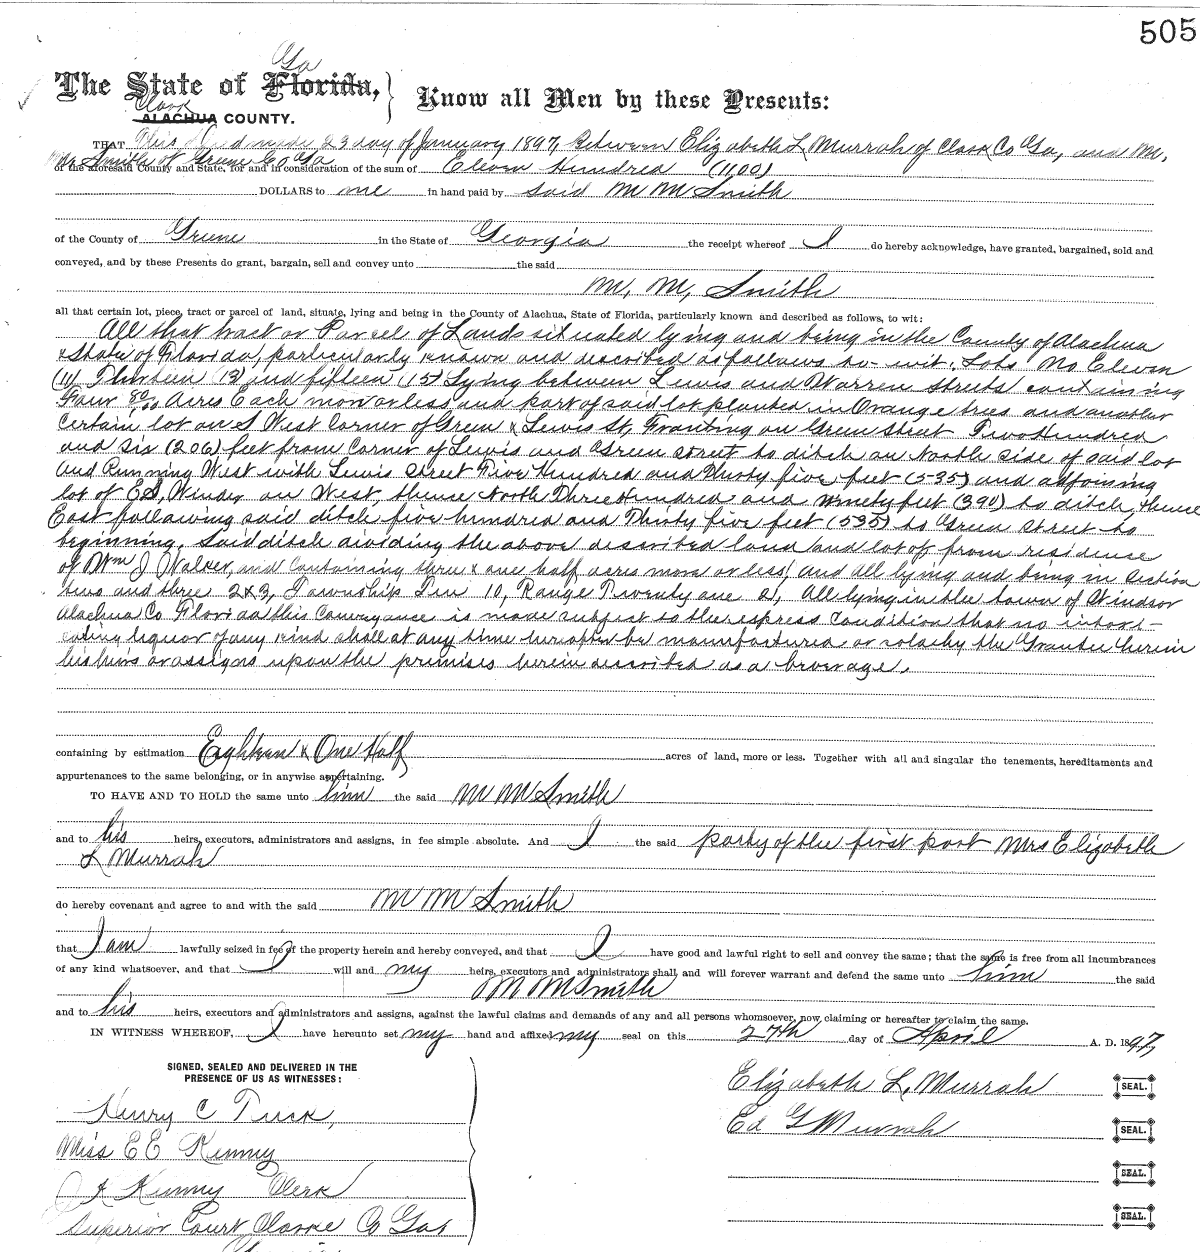 505
Ga
The State of Florida,
Clark
ALACHUA COUNTY.
Know all Men by these Presents:
THAT This deed made 23 day of January 1897, Between Elizabeth L Murrah of Clark Co Ga, and M.
M. Smith of Greene Co Ga
of the aforesaid County and State, for and in consideration of the sum of Eleven Hundred (1100)
DOLLARS to me in hand paid by said M M Smith
of the County of Greene in the State of Georgia the receipt whereof I do hereby acknowledge, have granted, bargained, sold and
conveyed, and by these Presents do grant, bargain, sell and convey unto the said
M. M. Smith
all that certain lot, piece, tract or parcel of land, situate, lying and being in the County of Alachua, State of Florida, particularly known and described as follows, to wit:
All that tract or Parcel of Lands situated lying and being in the County of Alachua
& State of Florida, particularly known and described as follows to-wit: Lots No Eleven
(11) Thirteen (13) and fifteen (15) Lying between Lewis and Warren Streets containing
Four 80/100 Acres Each more or less and part of said lot planted in Orange trees and another
Certain lot on S West Corner of Green & Lewis St, Fronting on Green Street Two Hundred
and Six (206) feet from Corner of Lewis and Green street to ditch on North side of said lot
and Running West with Lewis Street Five Hundred and Thirty five feet (535) and adjoining
lot of E S, on West thense North Three Hundred and Ninety feet (390) to ditch, thense
East following said ditch five hundred and Thirty five feet (535) to Green Street to
beginning. Said ditch dividing the above described land and lot of from residense
of Wm J Walker, and containing three & one half acres more or less, and all lying and being in Section
two and three 2 & 3, Township Ten 10, Range Twenty one 21, All lying in the town of Windsor
Alachua Co. Florida this Conveyance is made subject to the express Condition that no intoxi-
cating liquor of any kind shall at any time hereafter be manufactured or sold by the Grantee herein
his heirs or assigns upon the premises herein described as a beverage.
containing by estimation Eighteen & One Half acres of land, more or less. Together with all and singular the tenements, hereditaments and
appurtenances to the same belonging, or in anywise appertaining.
TO HAVE AND TO HOLD the same unto him the said M M Smith
and to his heirs, executors, administrators and assigns, in fee simple absolute. And I the said party of the first part Mrs Elizabeth
L Murrah
do hereby covenant and agree to and with the said M M Smith
that I am lawfully seized in fee of the property herein and hereby conveyed, and that I have good and lawful right to sell and convey the same; that the same is free from all incumbrances
of any kind whatsoever, and that I will and my heirs, executors and administrators shall and will forever warrant and defend the same unto him the said
M M Smith
and to his heirs, executors and administrators and assigns, against the lawful claims and demands of any and all persons whomsoever, now claiming or hereafter to claim the same.
IN WITNESS WHEREOF, I have hereunto set my hand and affixed my seal on this 27th day of April A. D. 1897,
SIGNED, SEALED AND DELIVERED IN THE
PRESENCE OF US AS WITNESSES:
Elizabeth L. Murrah SEAL.
Henry C Tuck,
Ed G Murrah SEAL.
Miss E E Kinney
SEAL.
Kinney Clerk
SEAL.
Superior Court Clarke Co Ga,